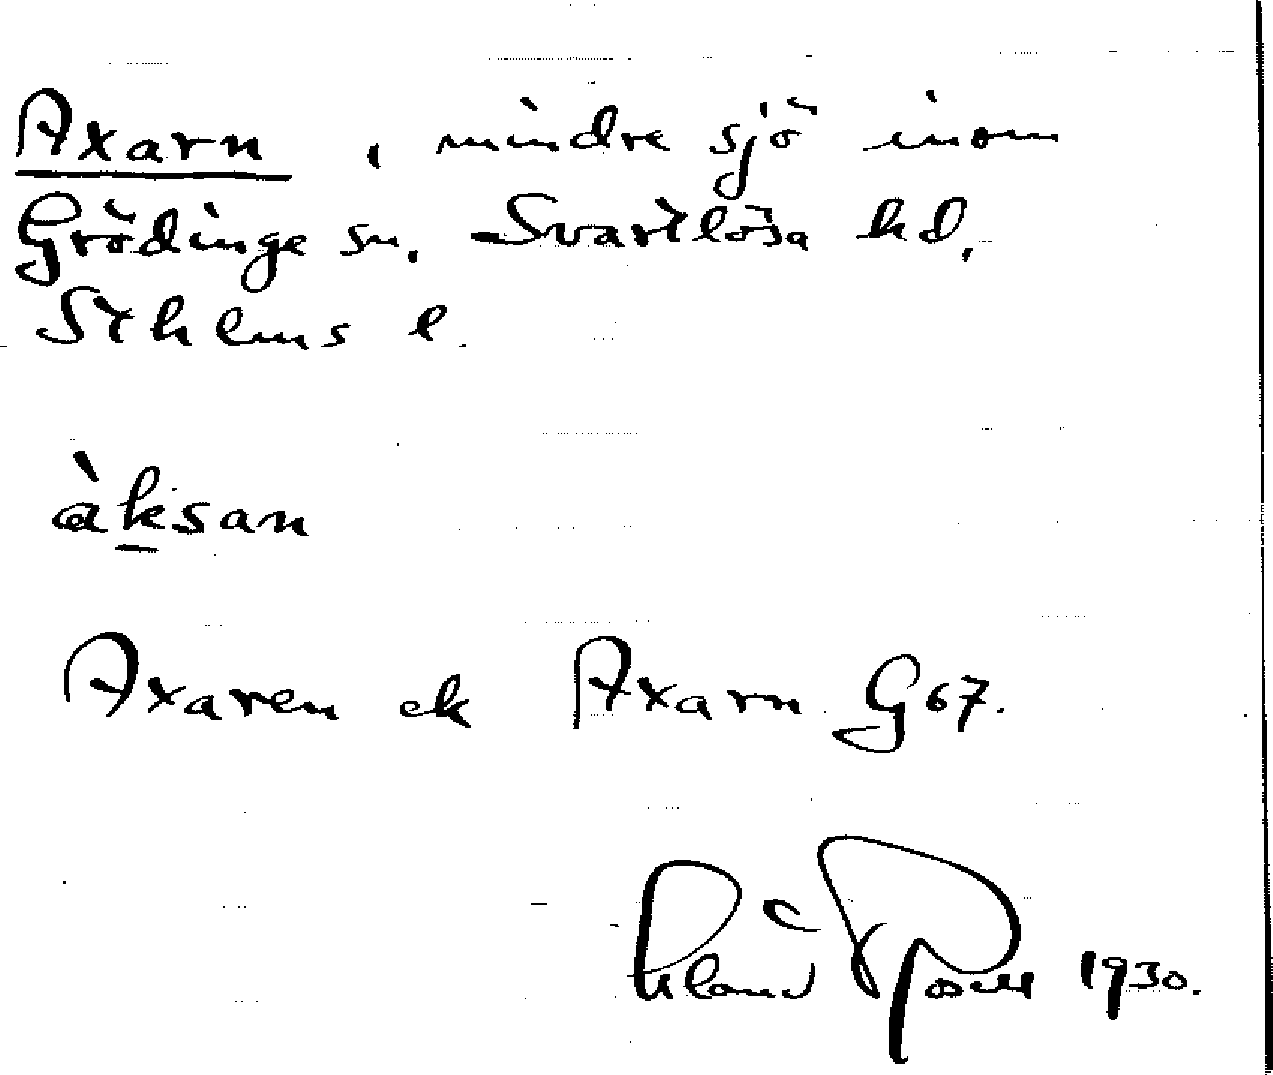 Axarn, mindre sjö inom
Grödinge sn. Svartlösa hd,
Sthlms l.
àksan
Axaren ek Axarn G67.
1930.